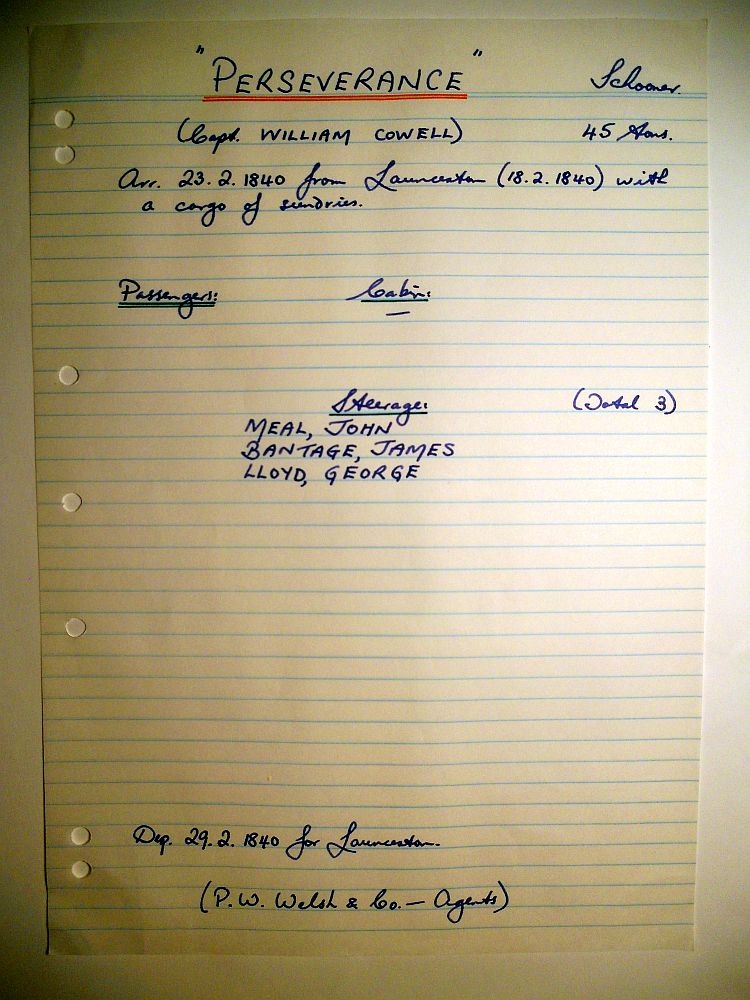 "PERSEVERANCE" Schooner.
(Capt. WILLIAM COWELL) 45 tons.
Arr. 23.2.1840 from Launceston (18.2.1840) with
a cargo of sundries.
Passengers: Cabin:
—
Steerage: (Total 3)
MEAL, JOHN
BANTAGE, JAMES
LLOYD, GEORGE
Dep. 29.2.1840 for Launceston.
(P.W. Welsh & Co. — Agents)